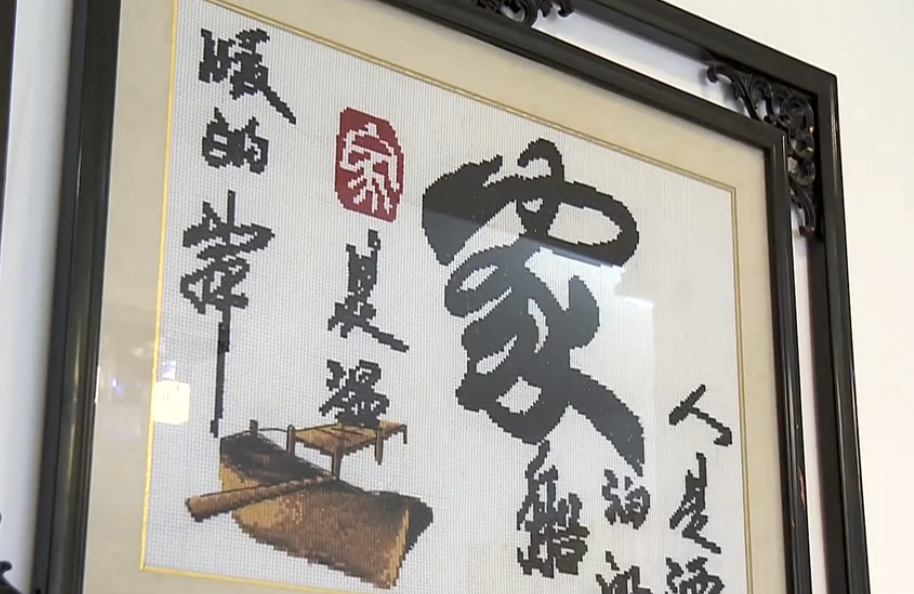 人是漂
泊的
船
家
家
是温
暖的岸